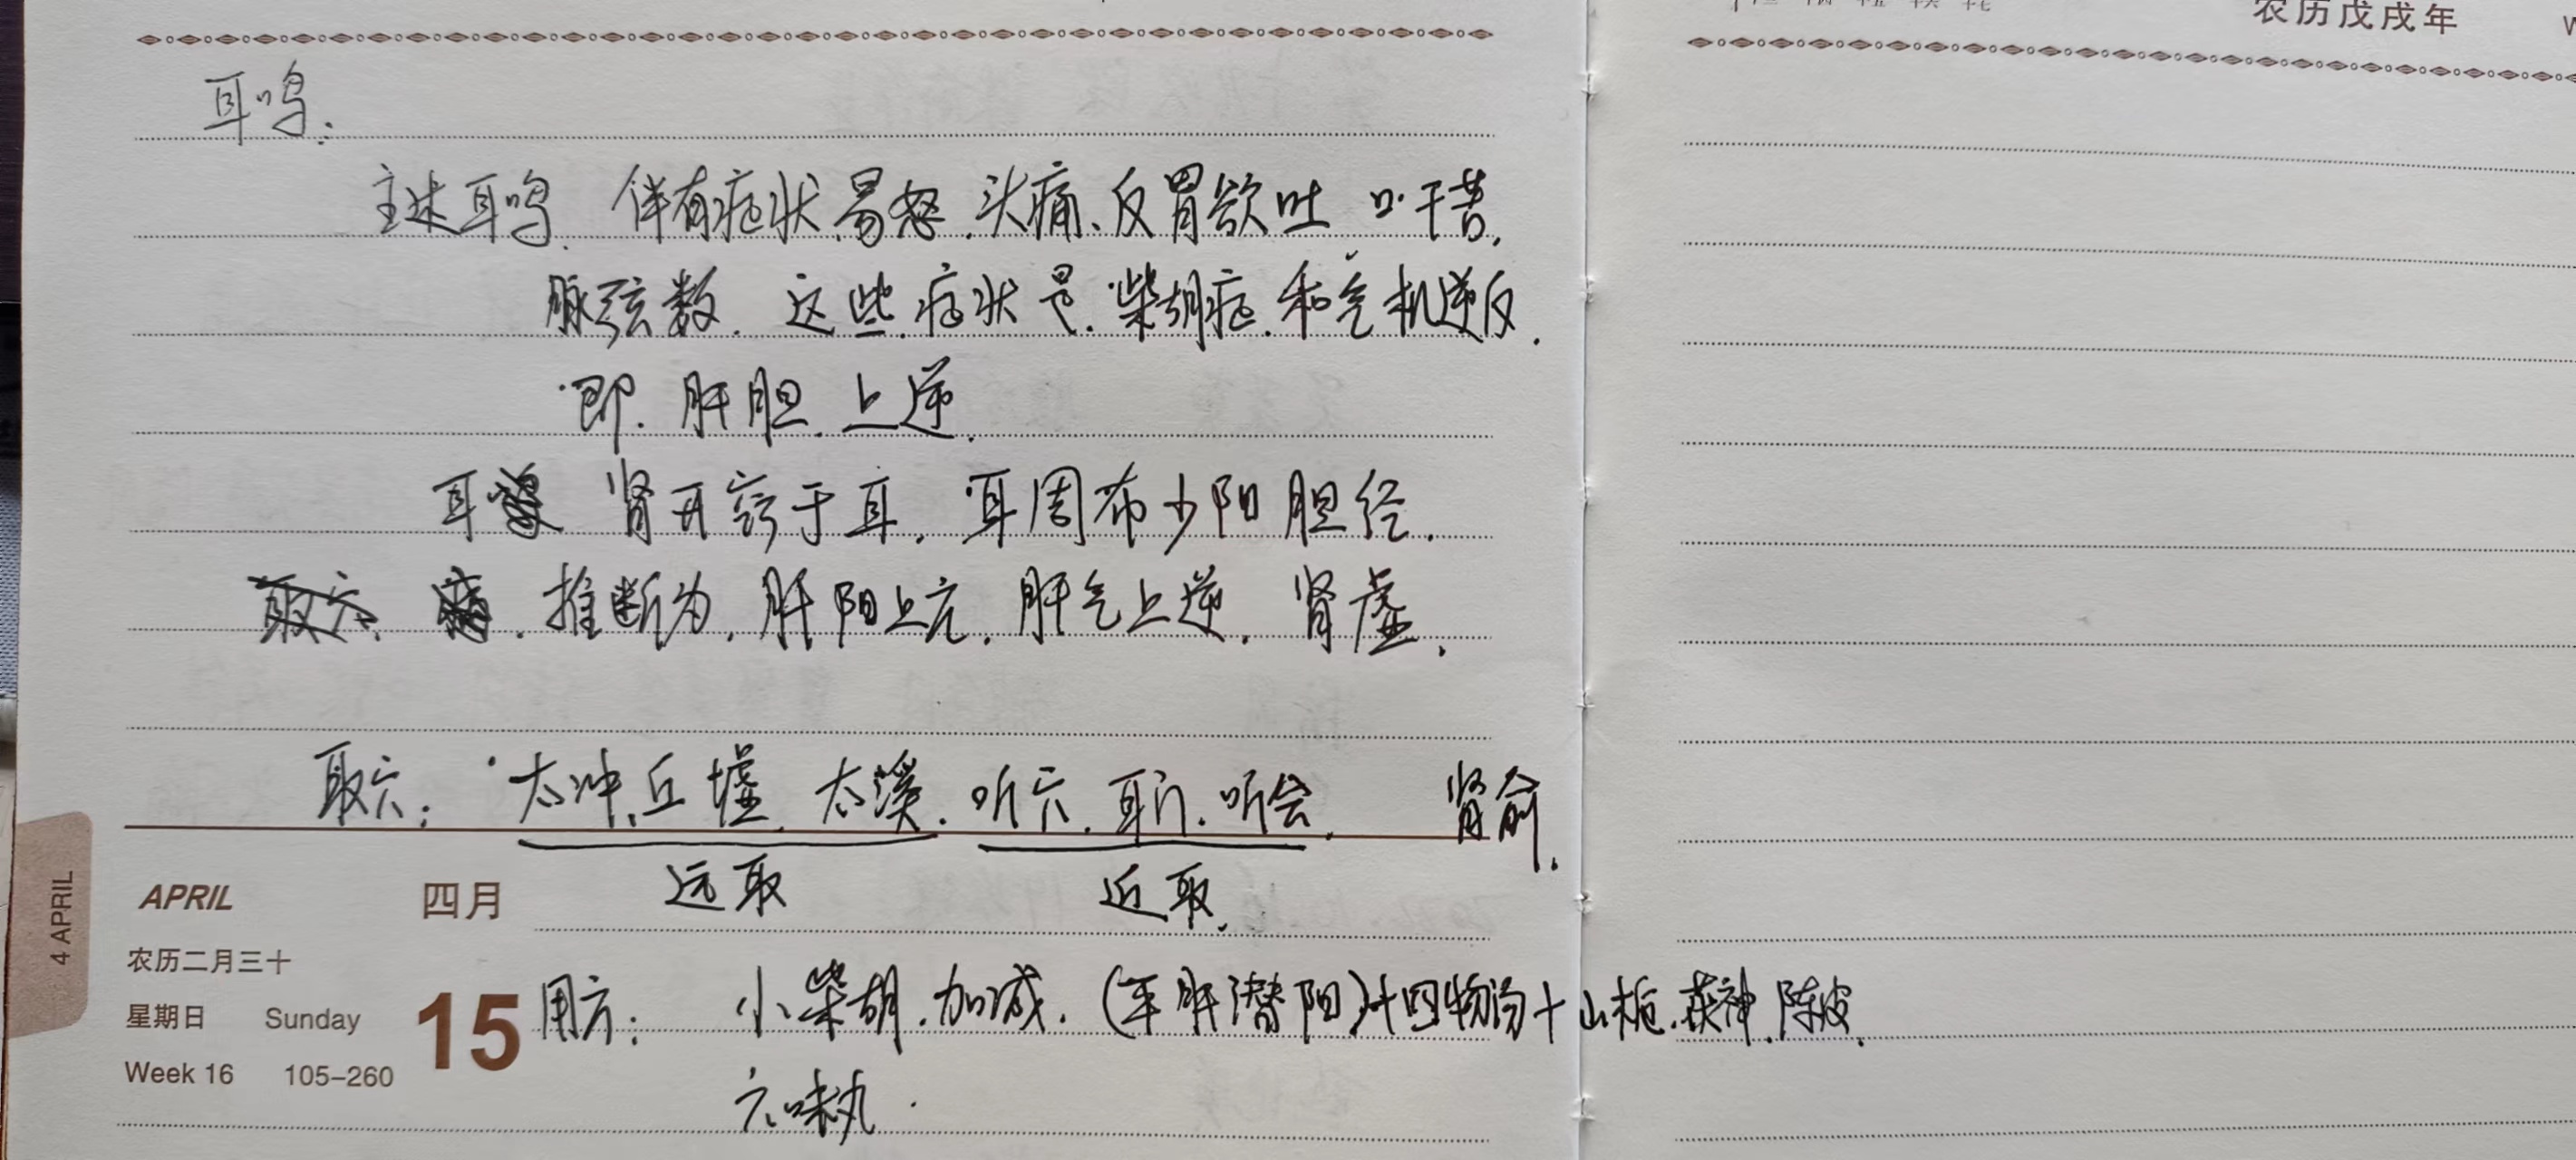 农历戊戌年
耳鸣.
主述耳鸣. 伴有症状.易怒.头痛、反胃欲吐 口干苦.
脉弦数. 这些.症状是.柴胡症.和气机逆反.
即.肝胆.上逆.
耳 肾开窍于耳.耳周布少阳胆经.
取穴. 推断为.肝阳上亢.肝气上逆.肾虚.
取穴: 太冲.丘墟.太溪.听穴.耳门.听会. 肾俞.
远取 近取.
4 APRIL
APRIL 四月
农历二月三十
星期日 Sunday 15
Week 16 105–260
用方: 小柴胡.加减.(平肝潜阳)+四物汤+山栀.茯神.陈皮.
六味丸.